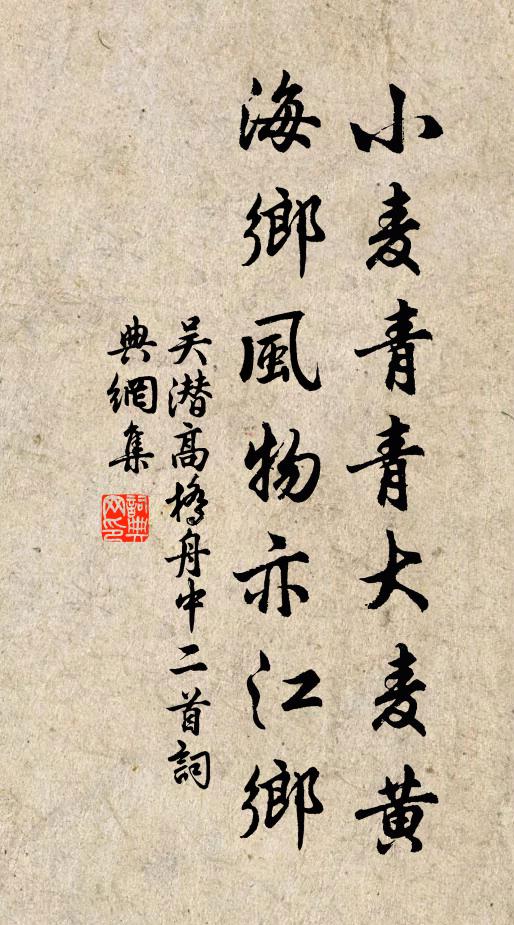 小麦青青大麦黄
海鄉風物亦江鄉
吴潜高橋舟中二首詞
典網集
詞典网印